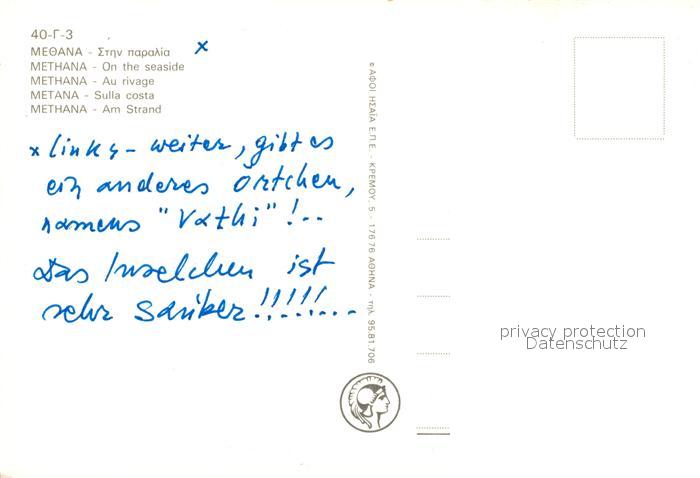 40-Γ-3
ΜΕΘΑΝΑ - Στην παραλία x
METHANA - On the seaside
METHANA - Au rivage
METANA - Sulla costa
METHANA - Am Strand
x links - weiter, gibt es
ein anderes Örtchen,
namens "Vathi"!..
Das Inselchen ist
sehr sauber!!!!!...
© ΑΦΟΙ ΗΣΑΪΑ Ε.Π.Ε. - ΚΡΕΜΟΥ, 5 - 176 76 ΑΘΗΝΑ - τηλ. 95.81.706
privacy protection
Datenschutz